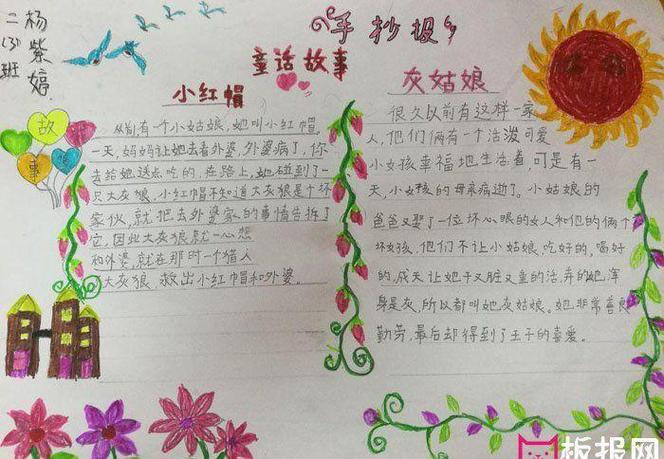 二(3)班
杨紫婷
手抄报
童话故事
故
事
小红帽
从前有一个小姑娘,她叫小红帽,
一天,妈妈让她去看外婆,外婆病了,你
去给她送点吃的,在路上,她碰到了一
只大灰狼,小红帽不知道大灰狼是个坏
家伙,就把去外婆家的事情告拆了
它,因此大灰狼就一心想
和外婆,就在那时一个猎人
大灰狼,救出小红帽和外婆。
灰姑娘
很久以前有这样一家
人,他们俩有一个活泼可爱
小女孩幸福地生活着,可是有一
天,小女孩的母亲病逝了。小姑娘的
爸爸又娶了一位坏心眼的女人和他的俩个
坏女孩,他们不让小姑娘,吃好的,喝好
的,成天让她干又脏又重的活,弄的她浑
身是灰,所以都叫她灰姑娘。她非常善良
勤劳,最后却得到了王子的喜爱。
板报网